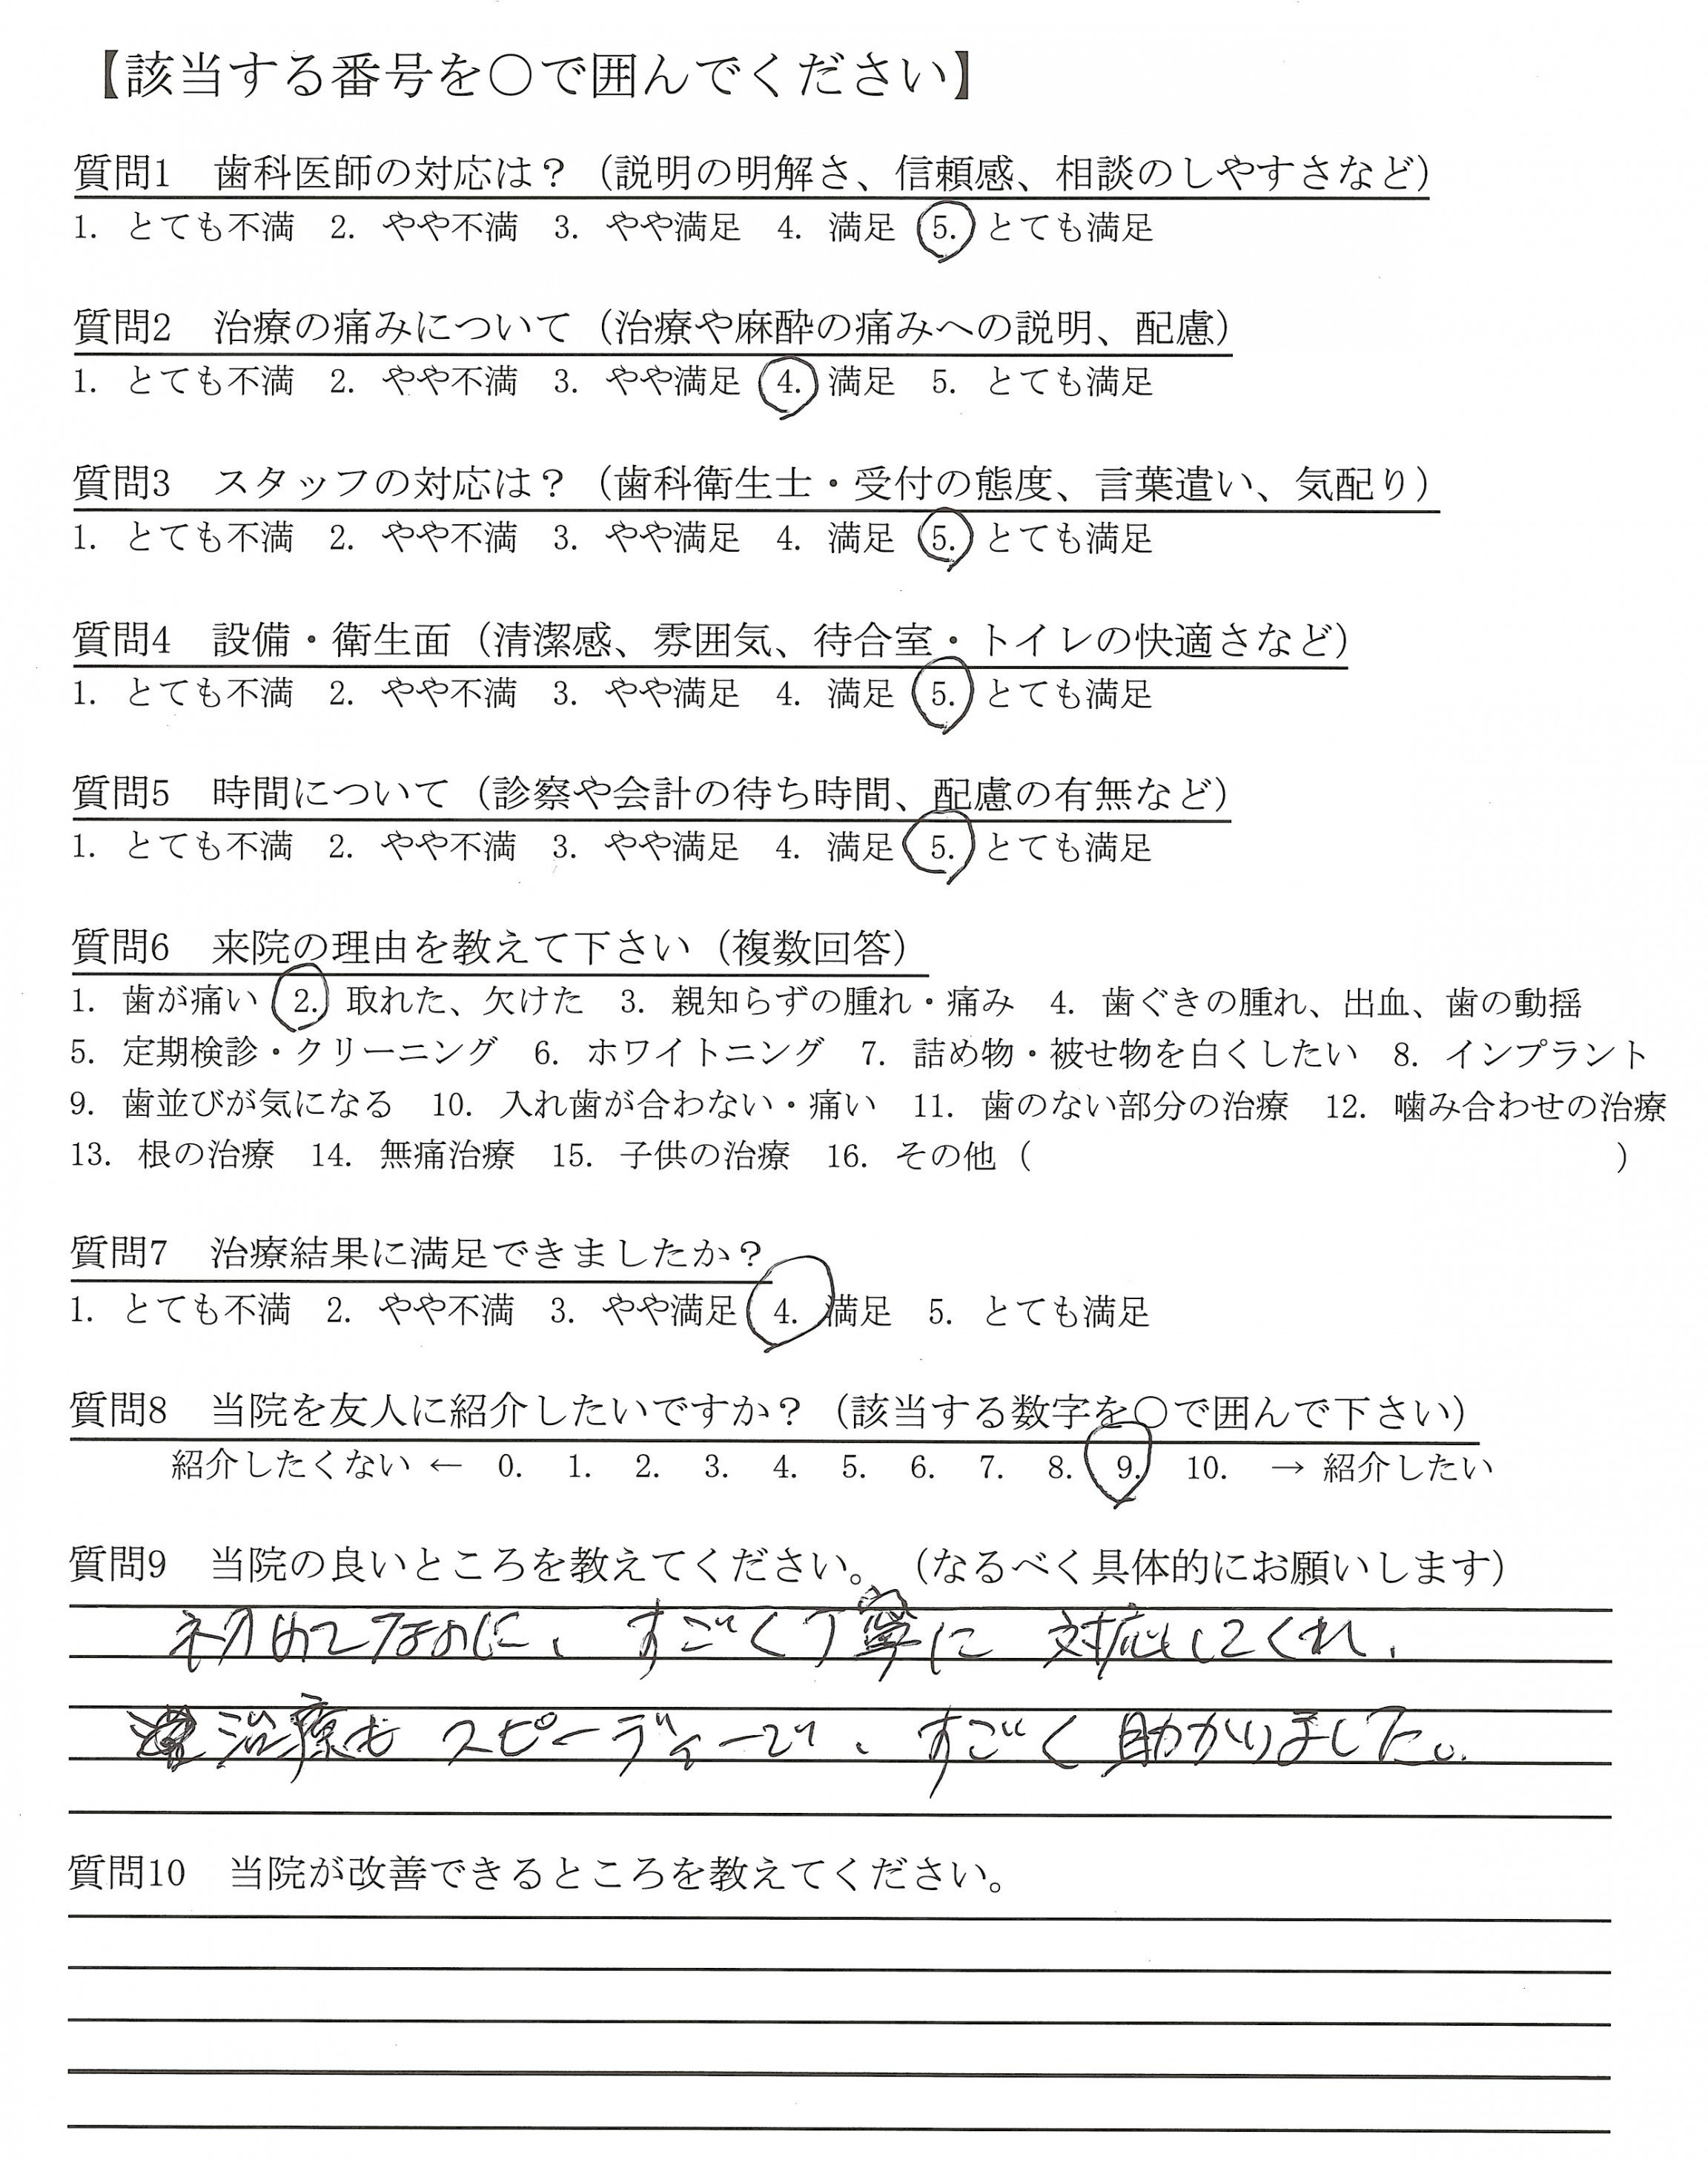 【該当する番号を○で囲んでください】
質問1 歯科医師の対応は？（説明の明解さ、信頼感、相談のしやすさなど）
1. とても不満 2. やや不満 3. やや満足 4. 満足 5. とても満足
質問2 治療の痛みについて（治療や麻酔の痛みへの説明、配慮）
1. とても不満 2. やや不満 3. やや満足 4. 満足 5. とても満足
質問3 スタッフの対応は？（歯科衛生士・受付の態度、言葉遣い、気配り）
1. とても不満 2. やや不満 3. やや満足 4. 満足 5. とても満足
質問4 設備・衛生面（清潔感、雰囲気、待合室・トイレの快適さなど）
1. とても不満 2. やや不満 3. やや満足 4. 満足 5. とても満足
質問5 時間について（診察や会計の待ち時間、配慮の有無など）
1. とても不満 2. やや不満 3. やや満足 4. 満足 5. とても満足
質問6 来院の理由を教えて下さい（複数回答）
1. 歯が痛い 2. 取れた、欠けた 3. 親知らずの腫れ・痛み 4. 歯ぐきの腫れ、出血、歯の動揺
5. 定期検診・クリーニング 6. ホワイトニング 7. 詰め物・被せ物を白くしたい 8. インプラント
9. 歯並びが気になる 10. 入れ歯が合わない・痛い 11. 歯のない部分の治療 12. 噛み合わせの治療
13. 根の治療 14. 無痛治療 15. 子供の治療 16. その他（ ）
質問7 治療結果に満足できましたか？
1. とても不満 2. やや不満 3. やや満足 4. 満足 5. とても満足
質問8 当院を友人に紹介したいですか？（該当する数字を○で囲んで下さい）
紹介したくない ← 0. 1. 2. 3. 4. 5. 6. 7. 8. 9. 10. → 紹介したい
質問9 当院の良いところを教えてください。（なるべく具体的にお願いします）
初めてなのに、すごく丁寧に対応してくれ、
治療もスピーディーで、すごく助かりました。
質問10 当院が改善できるところを教えてください。